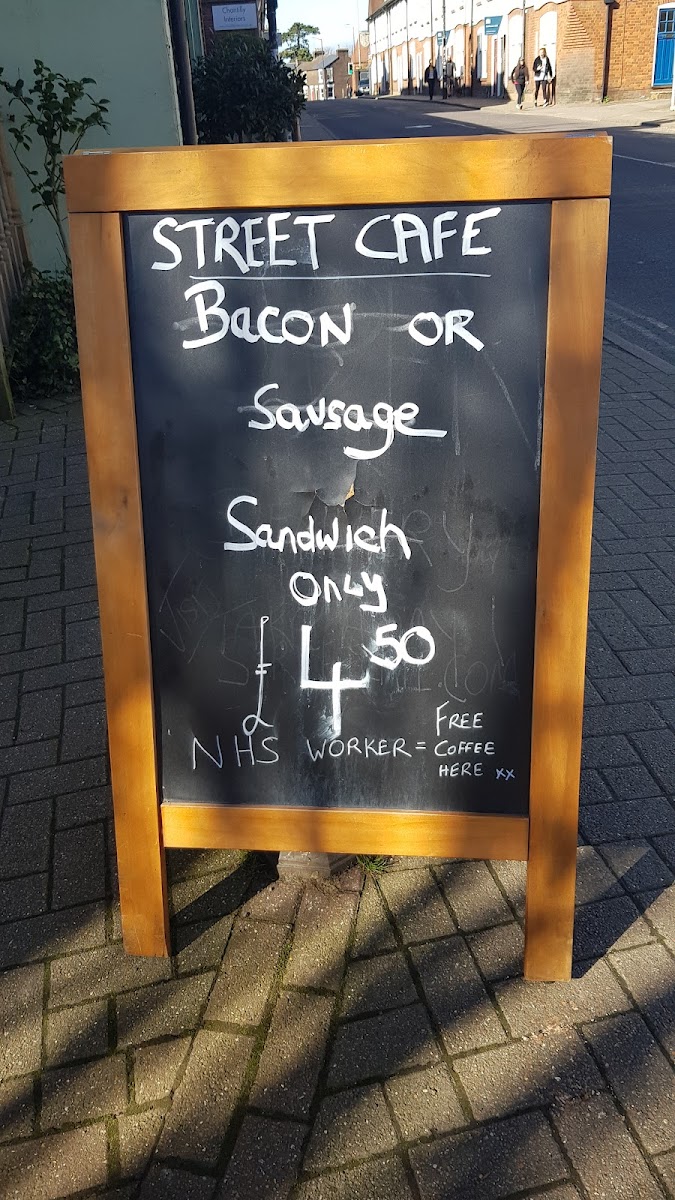 Chantilly
Interiors
STREET CAFE
BacoN OR
Sausage
Sandwich
ONLY
£4.50
NHS WORKER = FREE
COFFEE
HERE xx